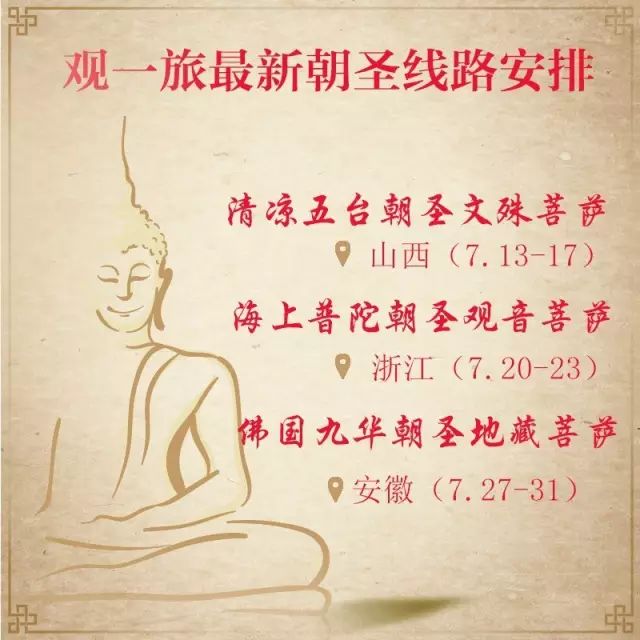 观一旅最新朝圣线路安排
清凉五台朝圣文殊菩萨
山西（7.13-17）
海上普陀朝圣观音菩萨
浙江（7.20-23）
佛国九华朝圣地藏菩萨
安徽（7.27-31）